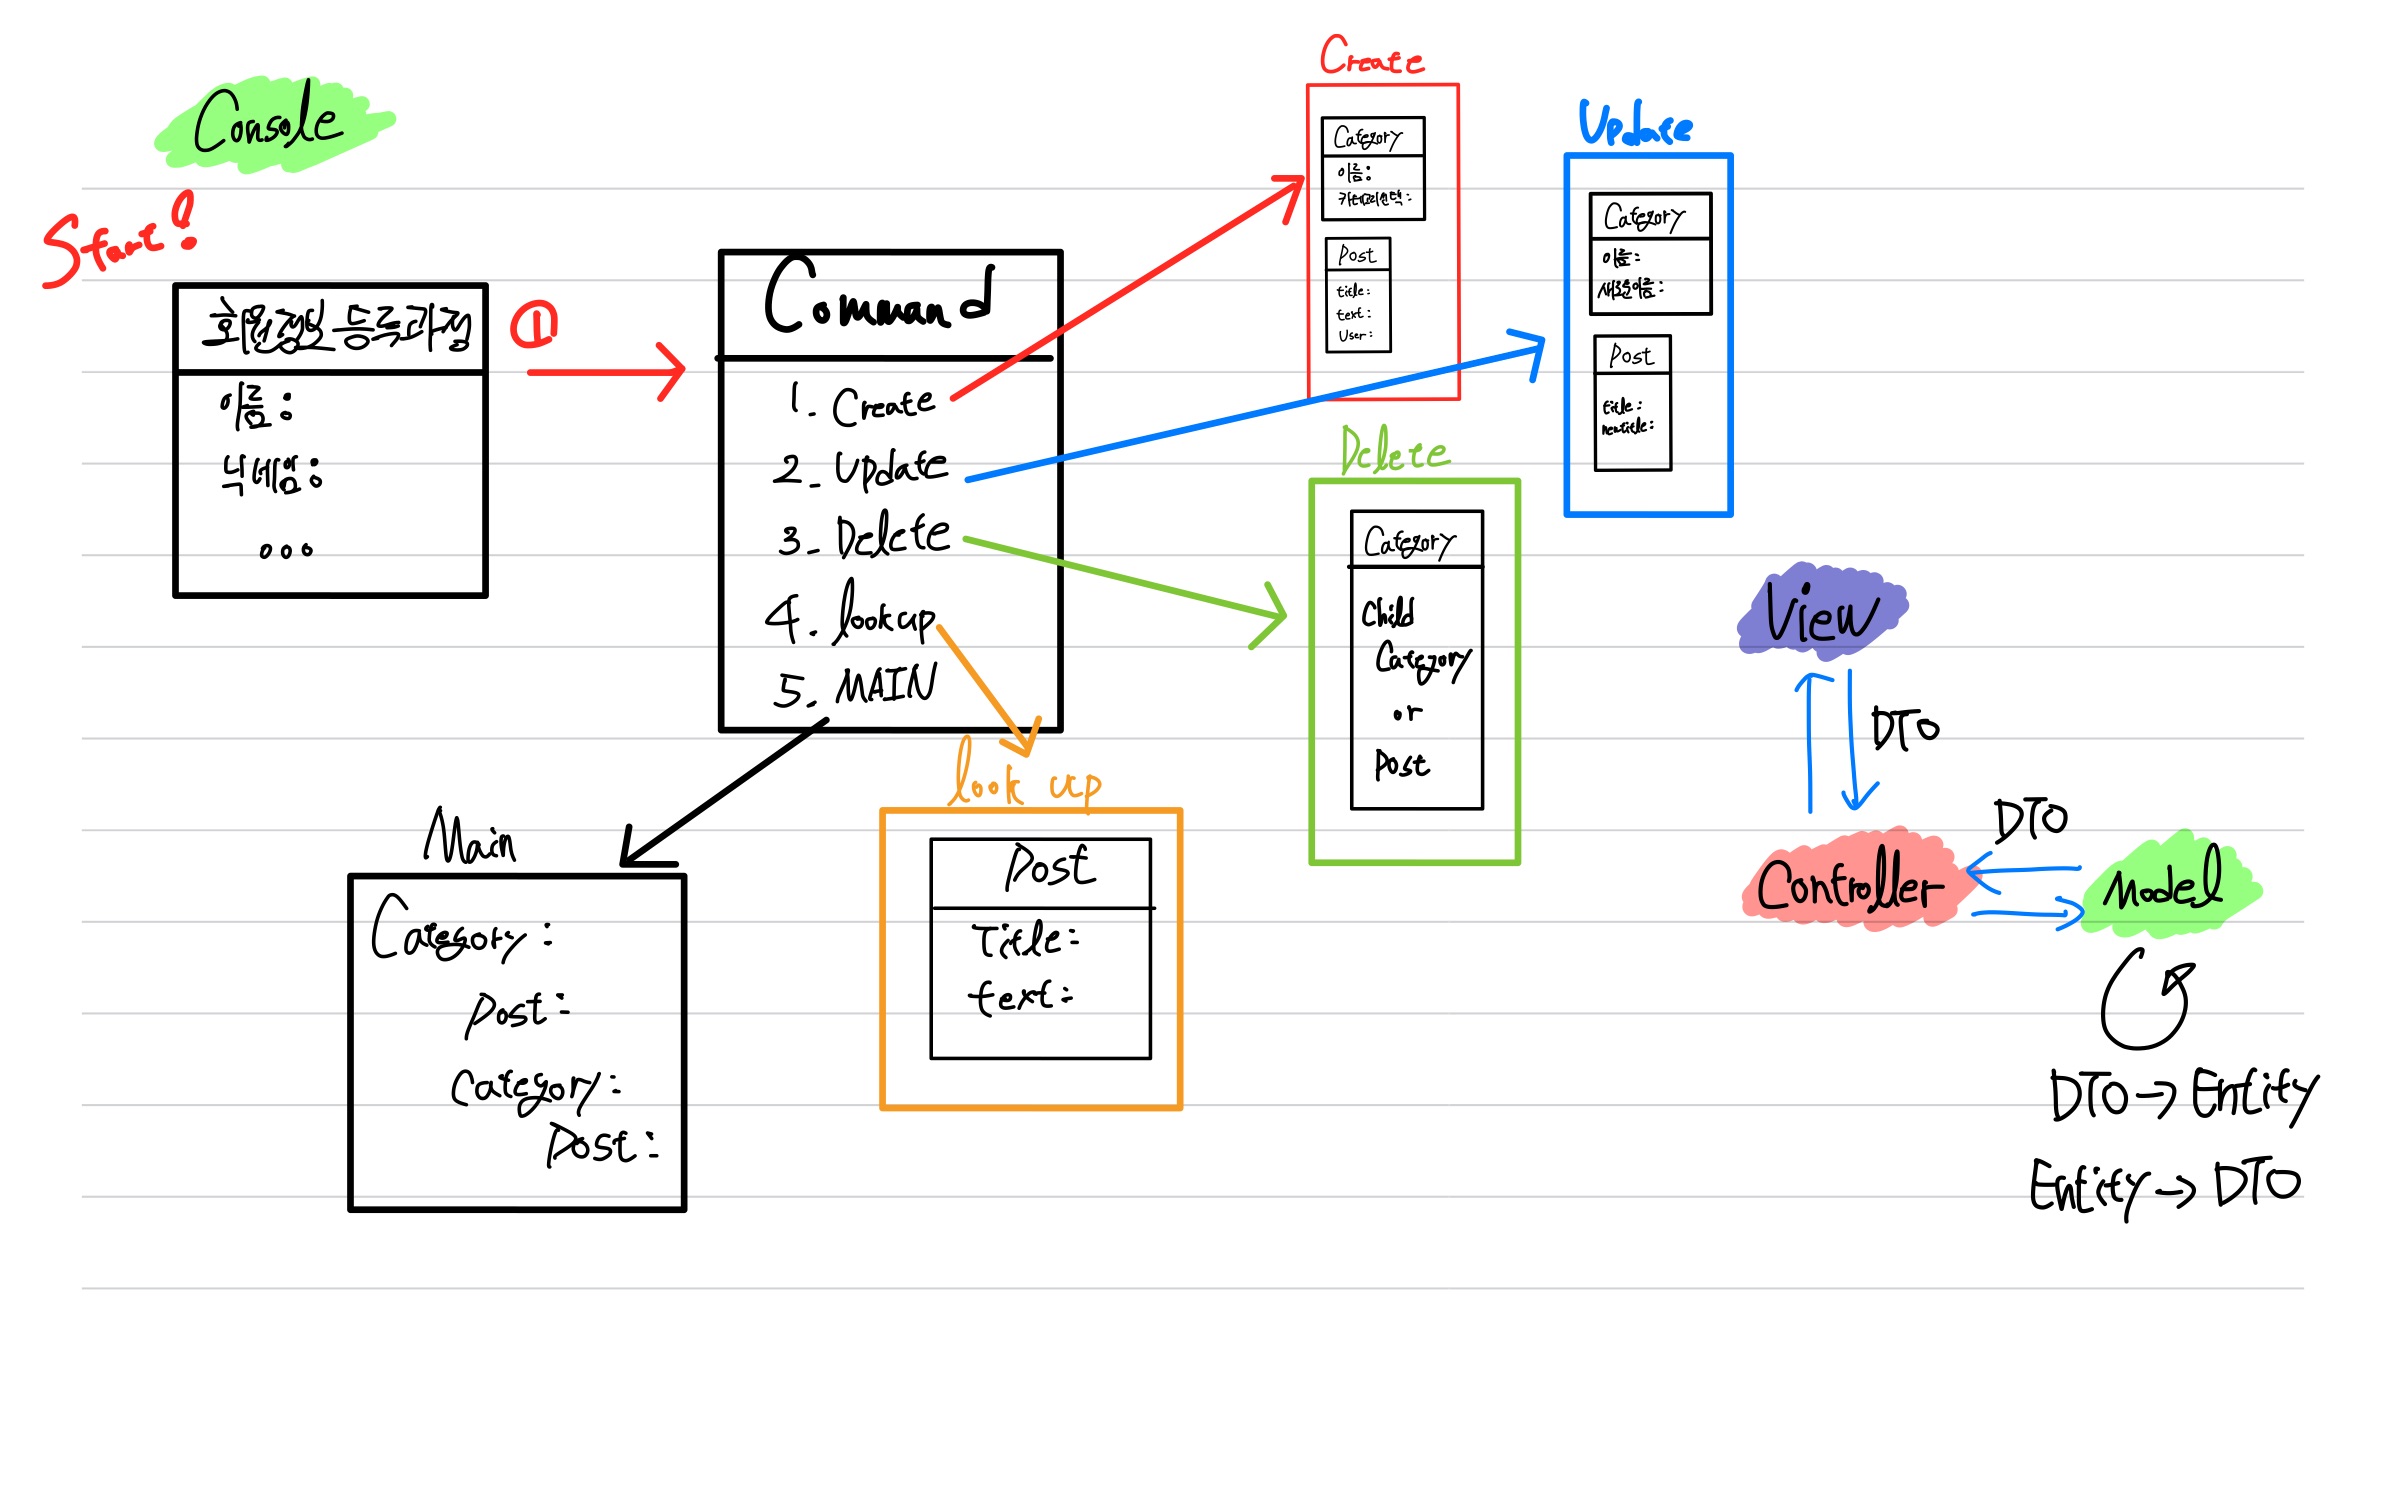 Console
Start!
회원정보 등록과정
이름:
닉네임:
...
①
Command
1. Create
2. Update
3. Delete
4. lookup
5. MAIN
Create
Category
이름:
카테고리선택:
Post
title:
text:
User:
Update
Category
이름:
새로운이름:
Post
title:
newtitle:
Delete
Category
Child
Category
or
Post
look up
Post
Title:
text:
Main
Category:
Post:
Category:
Post:
View
DTO
DTO
Controller
Model
DTO → Entity
Entity → DTO